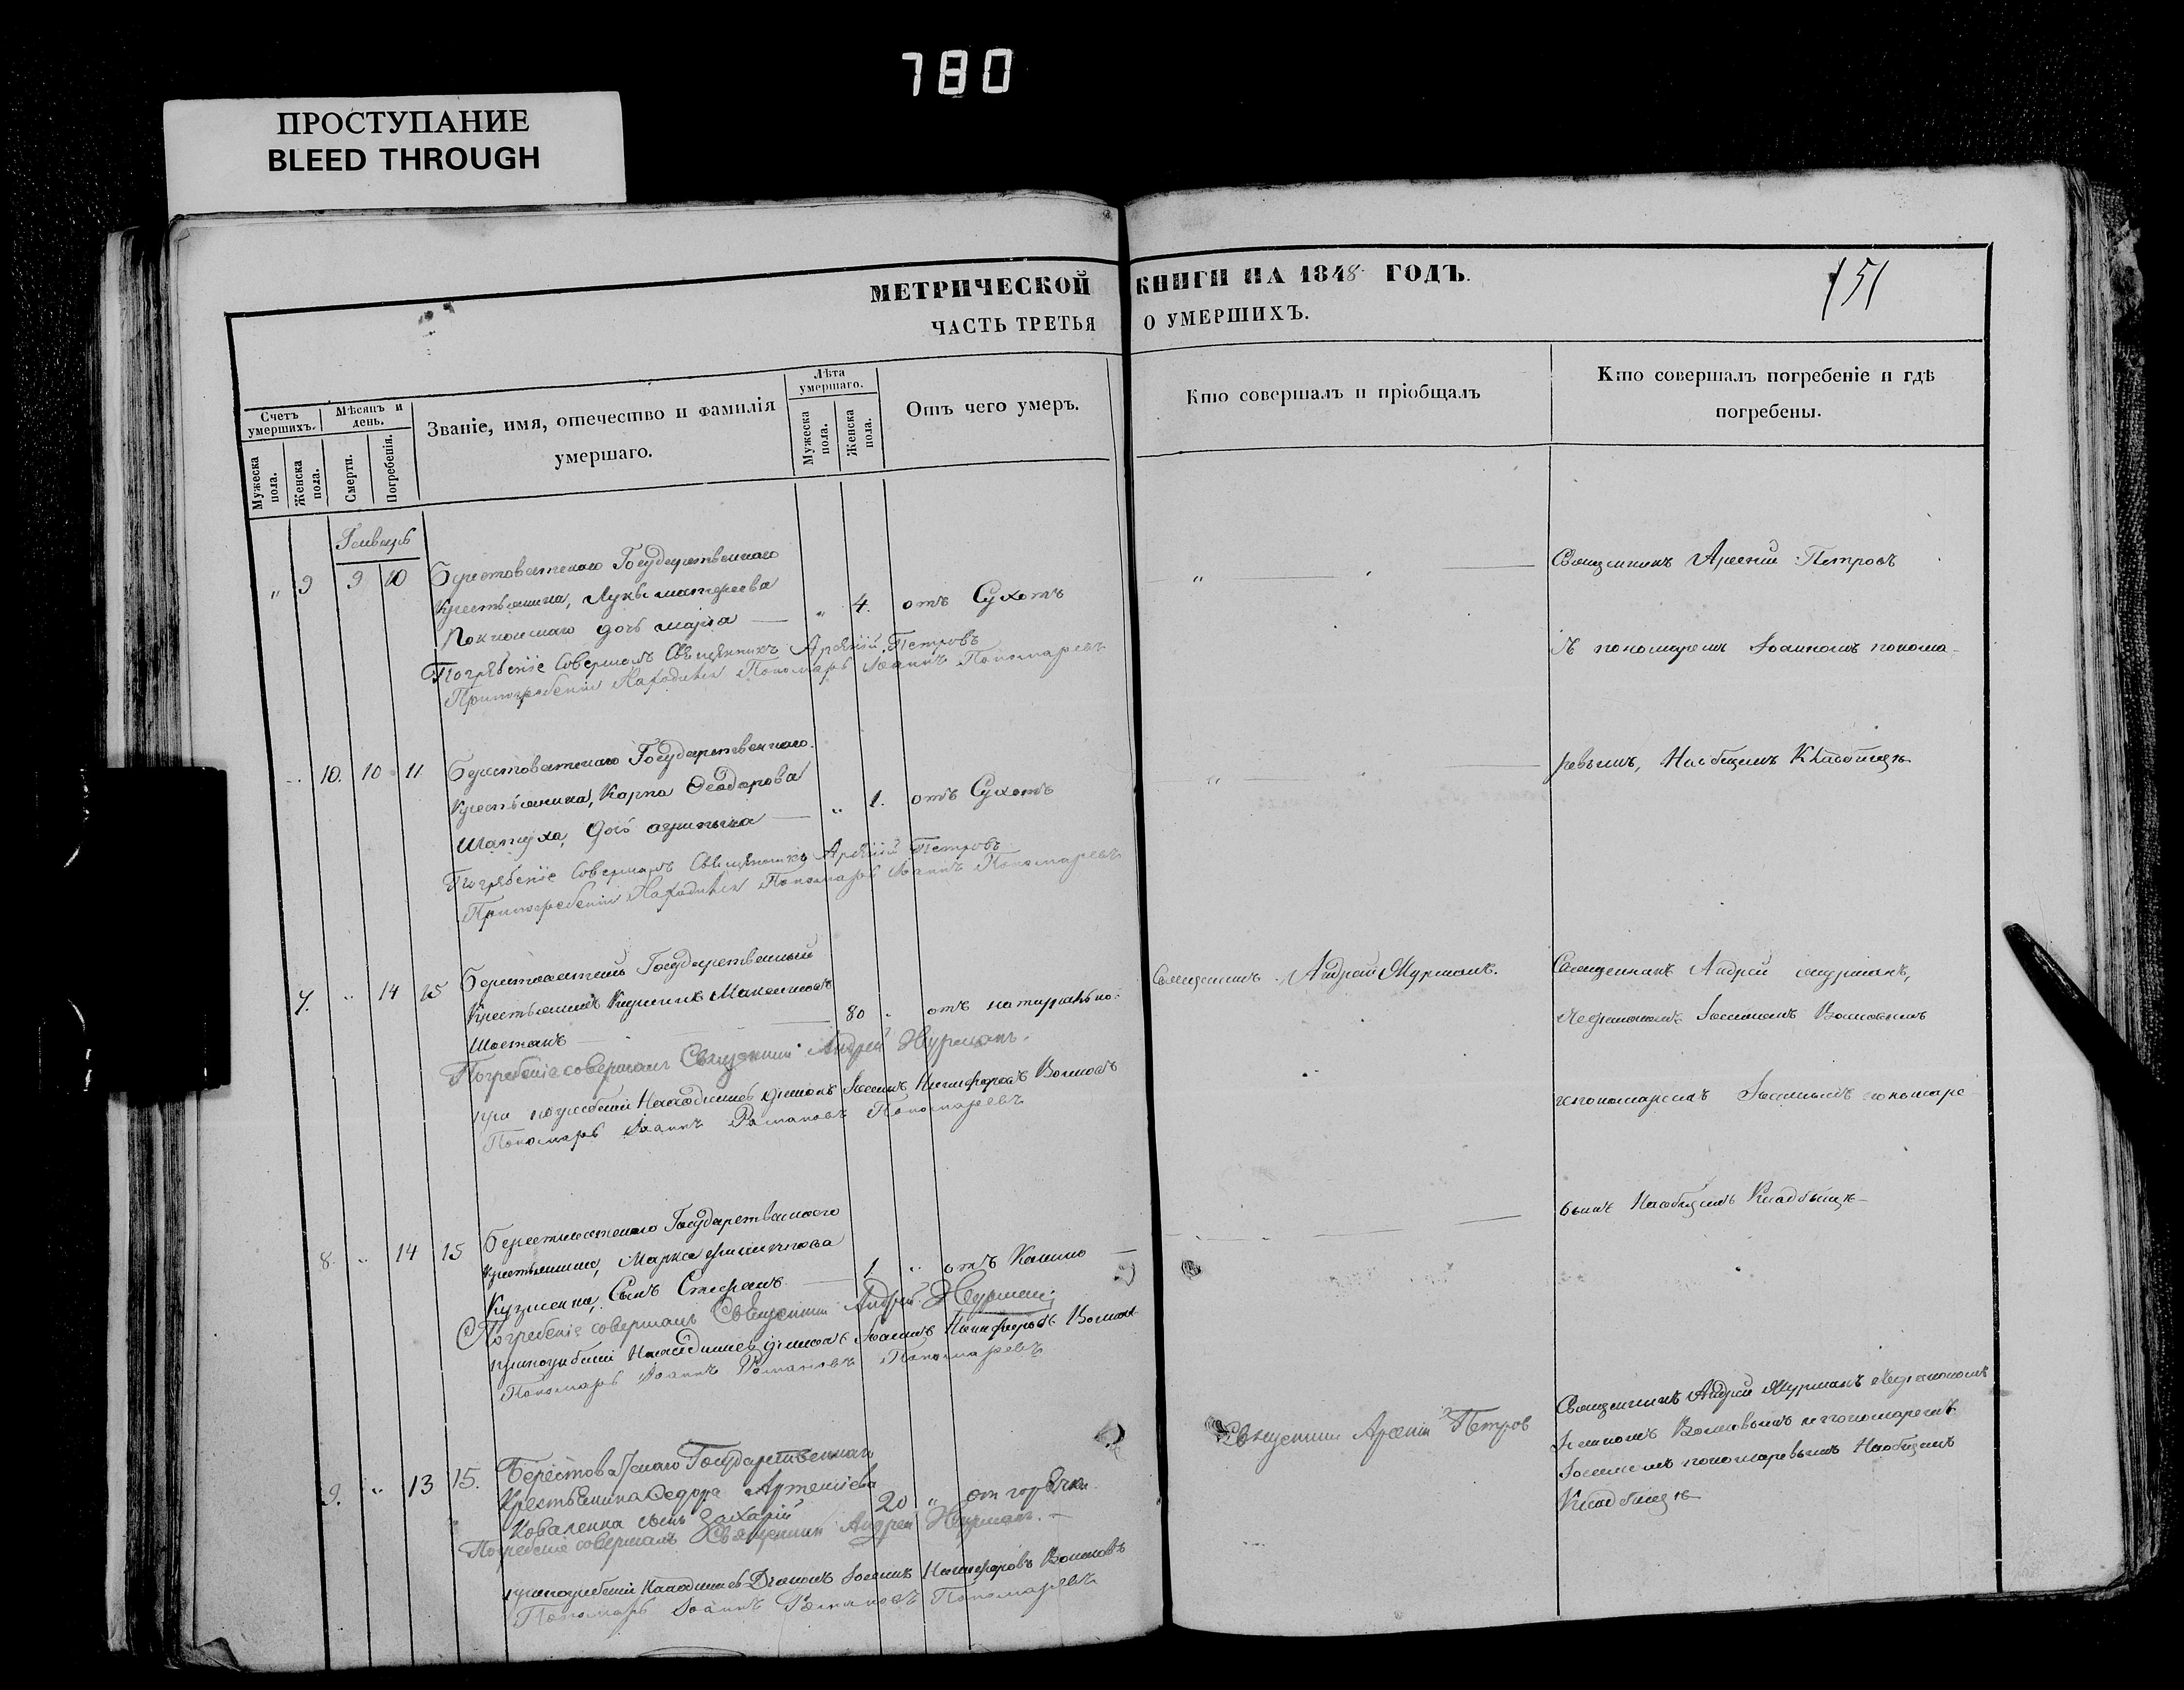 780
ПРОСТУПАНИЕ
BLEED THROUGH
МЕТРИЧЕСКОЙ КНИГИ НА 1848 ГОДЪ.
151
ЧАСТЬ ТРЕТЬЯ О УМЕРШИХЪ.
Счетъ умершихъ.
Мужеска пола.
Женска пола.
Мѣсяцъ и день.
Смерти.
Погребенія.
Званіе, имя, отечество и фамилія умершаго.
Лѣта умершаго.
Мужеска пола.
Женска пола.
Отъ чего умеръ.
Кто совершалъ и пріобщалъ
Кто совершалъ погребеніе и гдѣ погребены.
Генварь
„ 9 9 10 Берестоватскаго Государственнаго
Крестьянина, Луки
дочь марія — „ 4. отъ Сухотъ
Погребеніе Совершалъ Священникъ Арсеній Петровъ
При погребеніи Находился Пономарь Іоаннъ Пономаревъ
Священникъ Арсеній Петровъ
съ пономаремъ Іоанномъ понома-
ревымъ, На общемъ Кладбищѣ
„ 10. 10 11 Берестоватскаго Государственнаго
Крестьянина, Карпа Ѳеодорова
дочь — „ 1. отъ Сухотъ
Погребеніе Совершалъ Священникъ Арсеній Петровъ
При погребеніи Находился Пономарь Іоаннъ Пономаревъ
7. „ 14 15 Берестоватскій Государственный
Крестьянинъ Максимовъ
Шостакъ — 80 „ отъ натуральной
Погребеніе совершалъ Священникъ Андрей Журманъ.
при погребеніи Находились діаконъ Іоаннъ Никифоровъ Волковъ
Пономарь Іоаннъ Романовъ Пономаревъ
Священникъ Андрей Журманъ.
Священникъ Андрей Журманъ,
съ діакономъ Іоанномъ Волковымъ
и пономаремъ Іоанномъ пономаре-
вымъ На общемъ Кладбищѣ
8. „ 14 15 Берестоватскаго Государственнаго
Крестьянина, Марка
Кузменка, Сынъ Стефанъ — 1 „ отъ Кашлю —
Погребеніе совершалъ Священникъ Андрей Журманъ
при погребеніи Находились діаконъ Іоаннъ Никифоровъ Волковъ
Пономарь Іоаннъ Романовъ Пономаревъ
9. „ 13 15. Берестоватскаго Государственнаго
Крестьянина Ѳедора Артеміева
Коваленка сынъ Захарій 20 „ отъ горячки
Погребеніе совершалъ Священникъ Андрей Журманъ. —
при погребеніи Находились Діаконъ Іоаннъ Никифоровъ Волковъ
Пономарь Іоаннъ Романовъ Пономаревъ
Священникъ Арсеній Петров
Священникъ Андрей Журманъ съ діакономъ
Іоанномъ Волковымъ и пономаремъ
Іоанномъ пономаревымъ На общемъ
Кладбищѣ